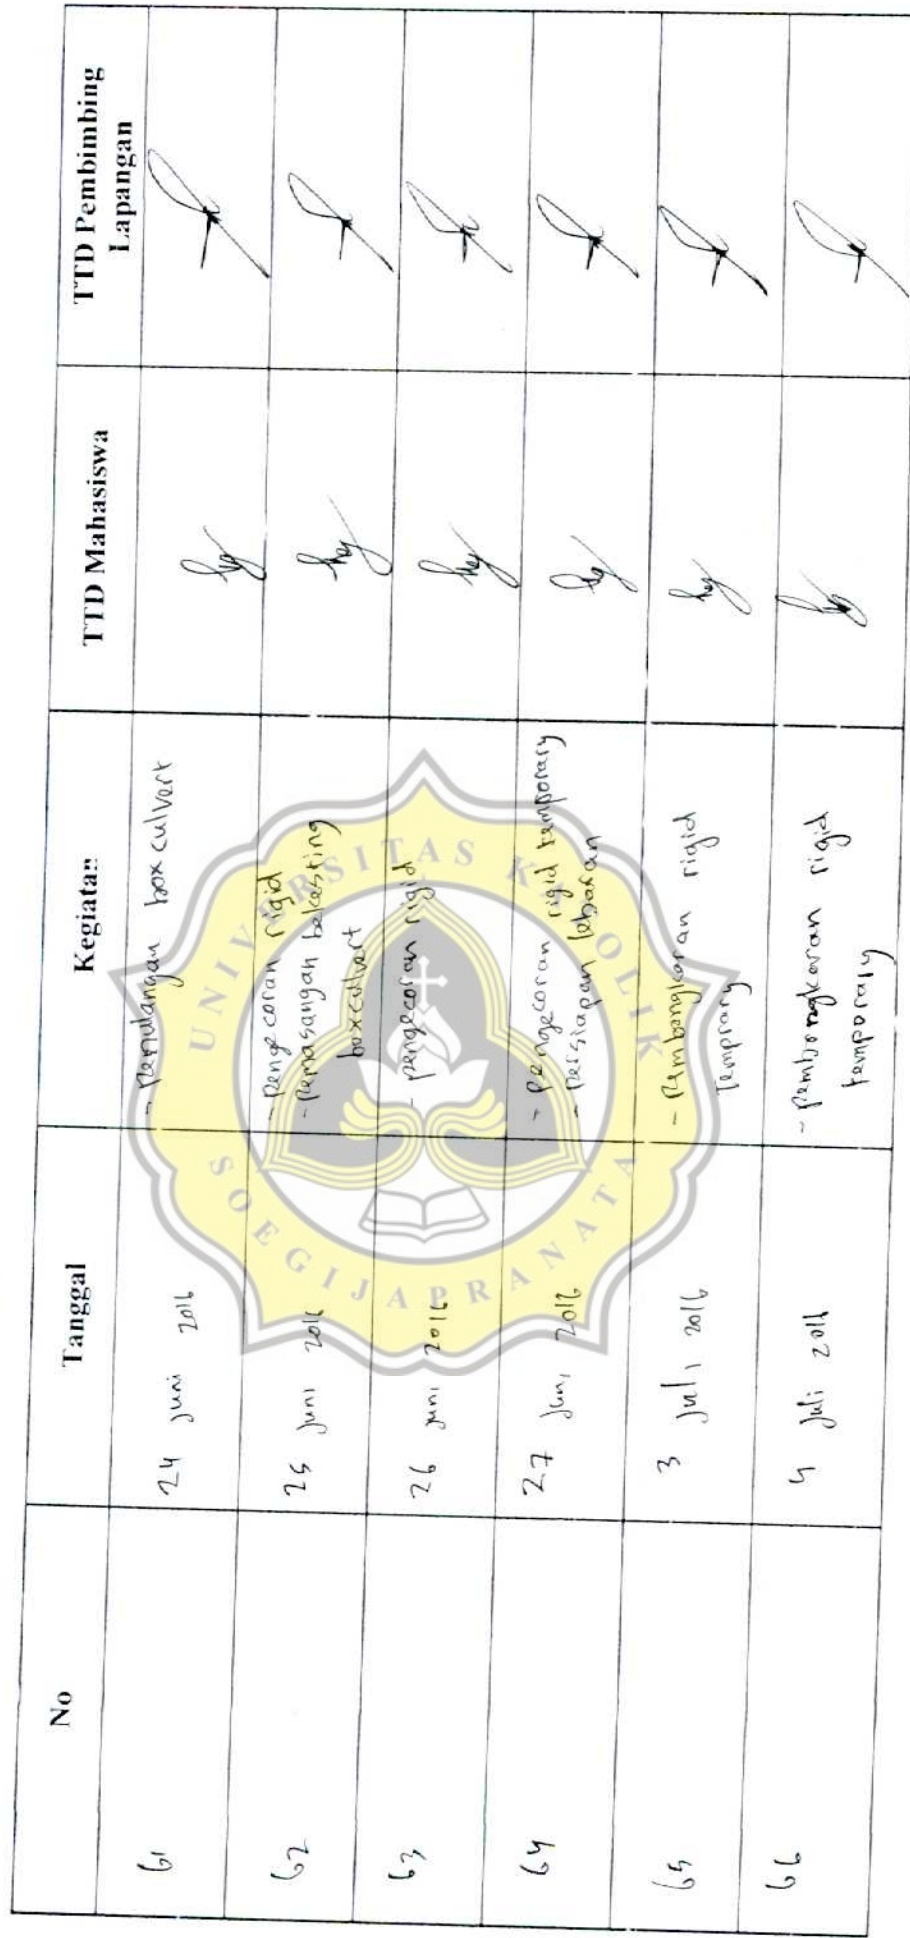 No Tanggal Kegiatan TTD Mahasiswa TTD Pembimbing
Lapangan
61 24 juni 2016 - Penulangan box culvert
62 25 juni 2016 - Pengecoran rigid
- Pemasangan bekesting
boxculvert
63 26 juni 2016 - pengecoran rigid
64 27 juni 2016 - Pengecoran rigid temporary
- persiapan lebaran
65 3 juli 2016 - Pembongkaran rigid
Temprary
66 4 juli 2016 - Pembongkaran rigid
temporary
UNIVERSITAS KATOLIK
SOEGIJAPRANATA